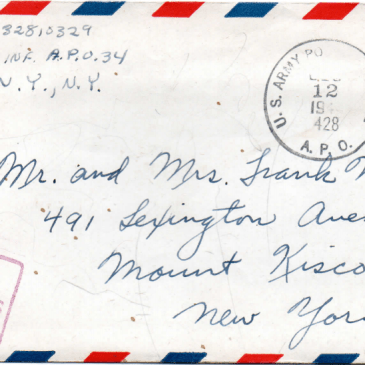 82810329
INF. A.P.O. 34
N.Y., N.Y.
U.S. ARMY PO
12
19
428
A.P.O.
Mr. and Mrs. Frank
491 Lexington Aven
Mount Kisco
New York